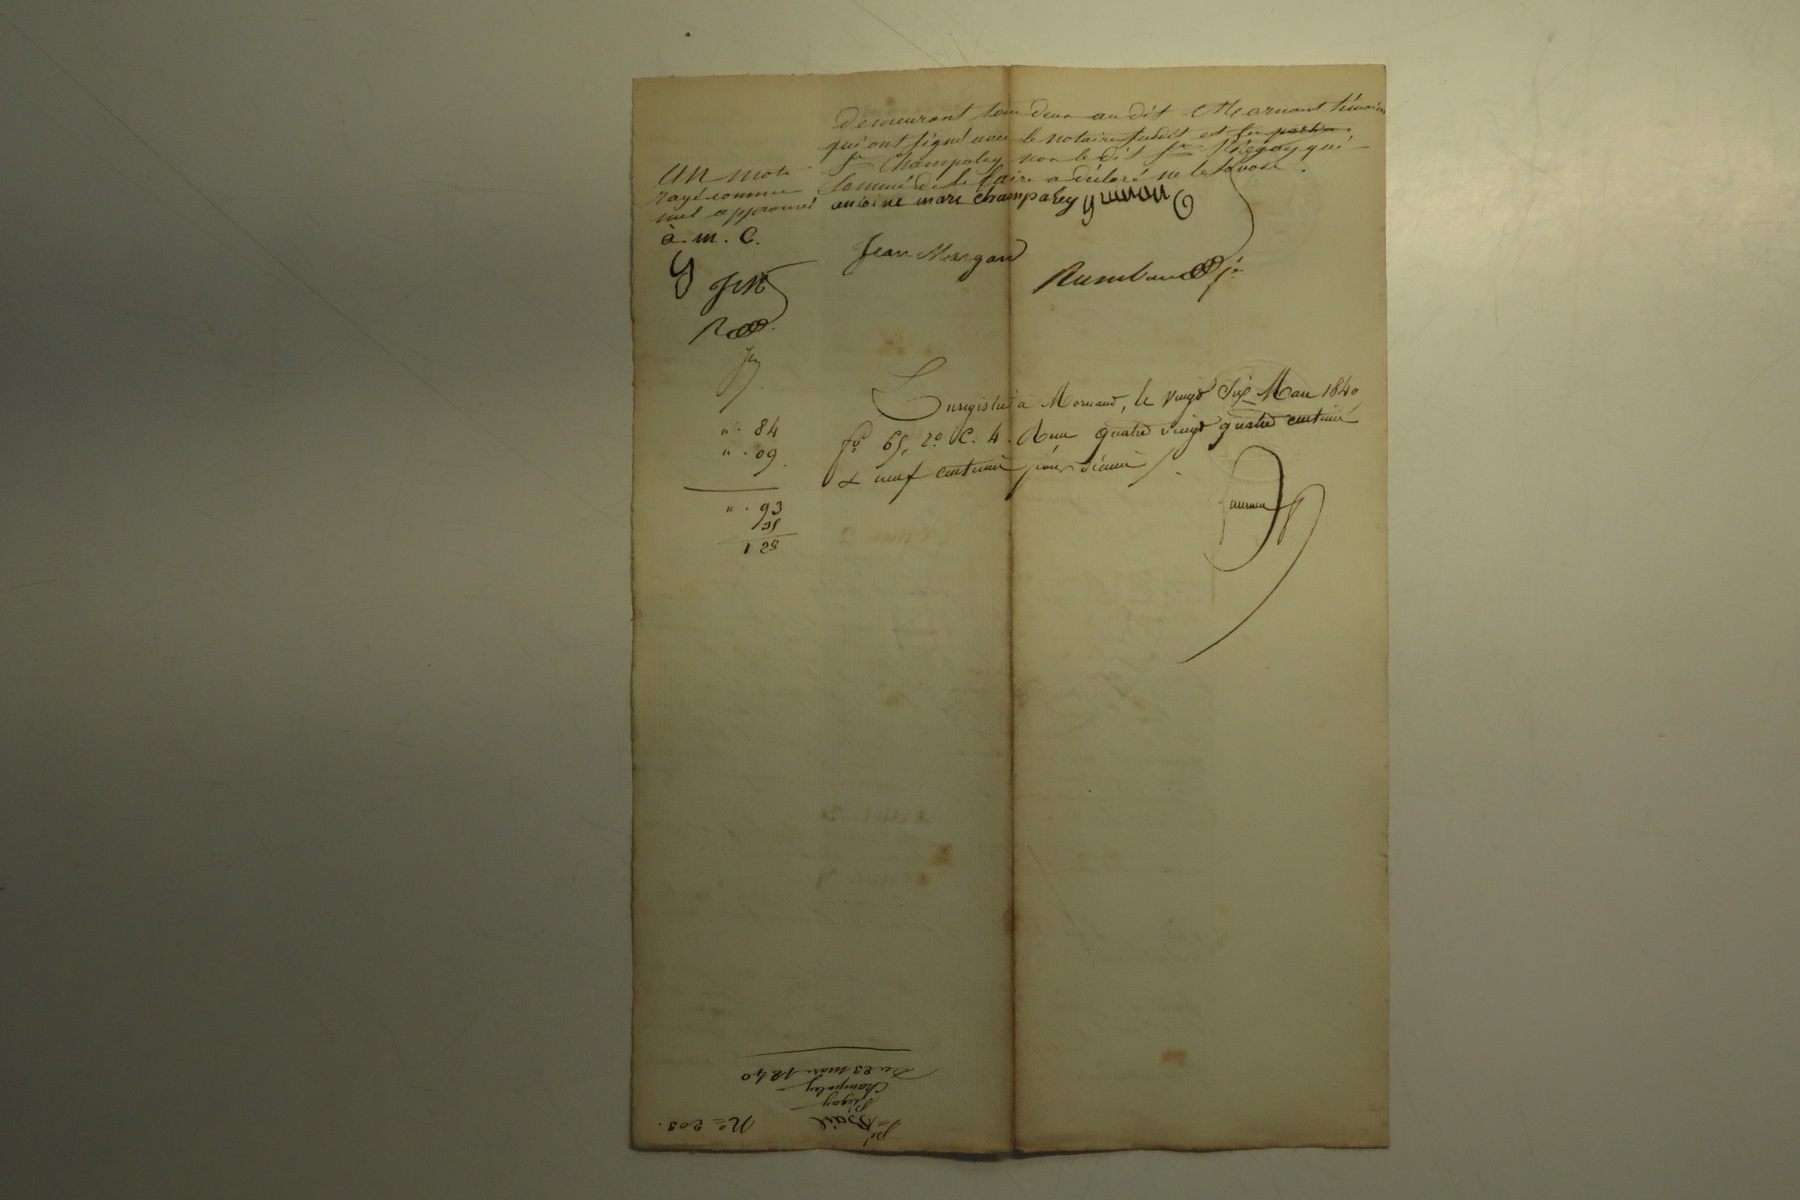 demeurant tous deux au dit Mornant témoins
qui ont signé avec le notaire susdit et les parties
Sr Champaley non le dit Sr Piégay qui
sommé de le faire a déclaré ne le savoir.
Un mot
rayé comme
nul approuvé
a. m. C.
antoine marc champaley
Jean
J M
Enregistré à Mornant, le vingt Six Mars 1840
fo 65, ro C. 4. Reçu quatre vingt quatre centimes
& neuf centimes pour décime
" . 84
" . 09
" . 93
35
1 28
No 203.
Bail
Piégay
Champaley
Du 23 mars 1840